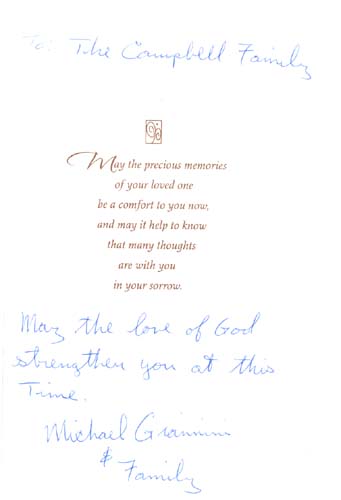 To: The Campbell Family
May the precious memories
of your loved one
be a comfort to you now,
and may it help to know
that many thoughts
are with you
in your sorrow.
May the love of God
strengthen you at this
Time.
Michael Giannini
& Family